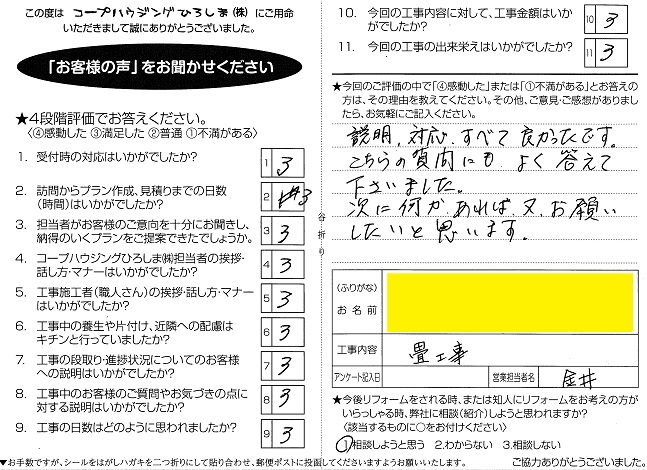 この度は コープハウジングひろしま(株) にご用命
いただきまして誠にありがとうございました。
「お客様の声」をお聞かせください
★4段階評価でお答えください。
〈④感動した ③満足した ②普通 ①不満がある〉
1. 受付時の対応はいかがでしたか? 1 3
2. 訪問からプラン作成、見積りまでの日数
(時間)はいかがでしたか? 2 3
3. 担当者がお客様のご意向を十分にお聞きし、
納得のいくプランをご提案できたでしょうか。 3 3
4. コープハウジングひろしま㈱担当者の挨拶・
話し方・マナーはいかがでしたか? 4 3
5. 工事施工者(職人さん)の挨拶・話し方・マナー
はいかがでしたか? 5 3
6. 工事中の養生や片付け、近隣への配慮は
キチンと行っていましたか? 6 3
7. 工事の段取り・進捗状況についてのお客様
への説明はいかがでしたか? 7 3
8. 工事中のお客様のご質問やお気づきの点に
対する説明はいかがでしたか? 8 3
9. 工事の日数はどのように思われましたか? 9 3
▼お手数ですが、シールをはがしハガキを二つ折りにして貼り合わせ、郵便ポストに投函してくださいますようお願いいたします。
谷折り
10. 今回の工事内容に対して、工事金額はいか
がでしたか? 10 3
11. 今回の工事の出来栄えはいかがでしたか? 11 3
★今回のご評価の中で「④感動した」または「①不満がある」とお答えの
方は、その理由を教えてください。その他、ご意見・ご感想がありました
ら、お気軽にご記入ください。
説明、対応、すべて良かったです。
こちらの質問にも よく答えて
下さいました。
次に何か、あれば、又、お願い
したいと思います。
(ふりがな)
お名前
工事内容 畳工事
アンケート記入日 営業担当者名 金井
★今後リフォームをされる時、または知人にリフォームをお考えの方が
いらっしゃる時、弊社に相談(紹介)しようと思われますか?
〈該当するものに○をお付けください〉
①相談しようと思う 2.わからない 3.相談しない
ご協力ありがとうございました。